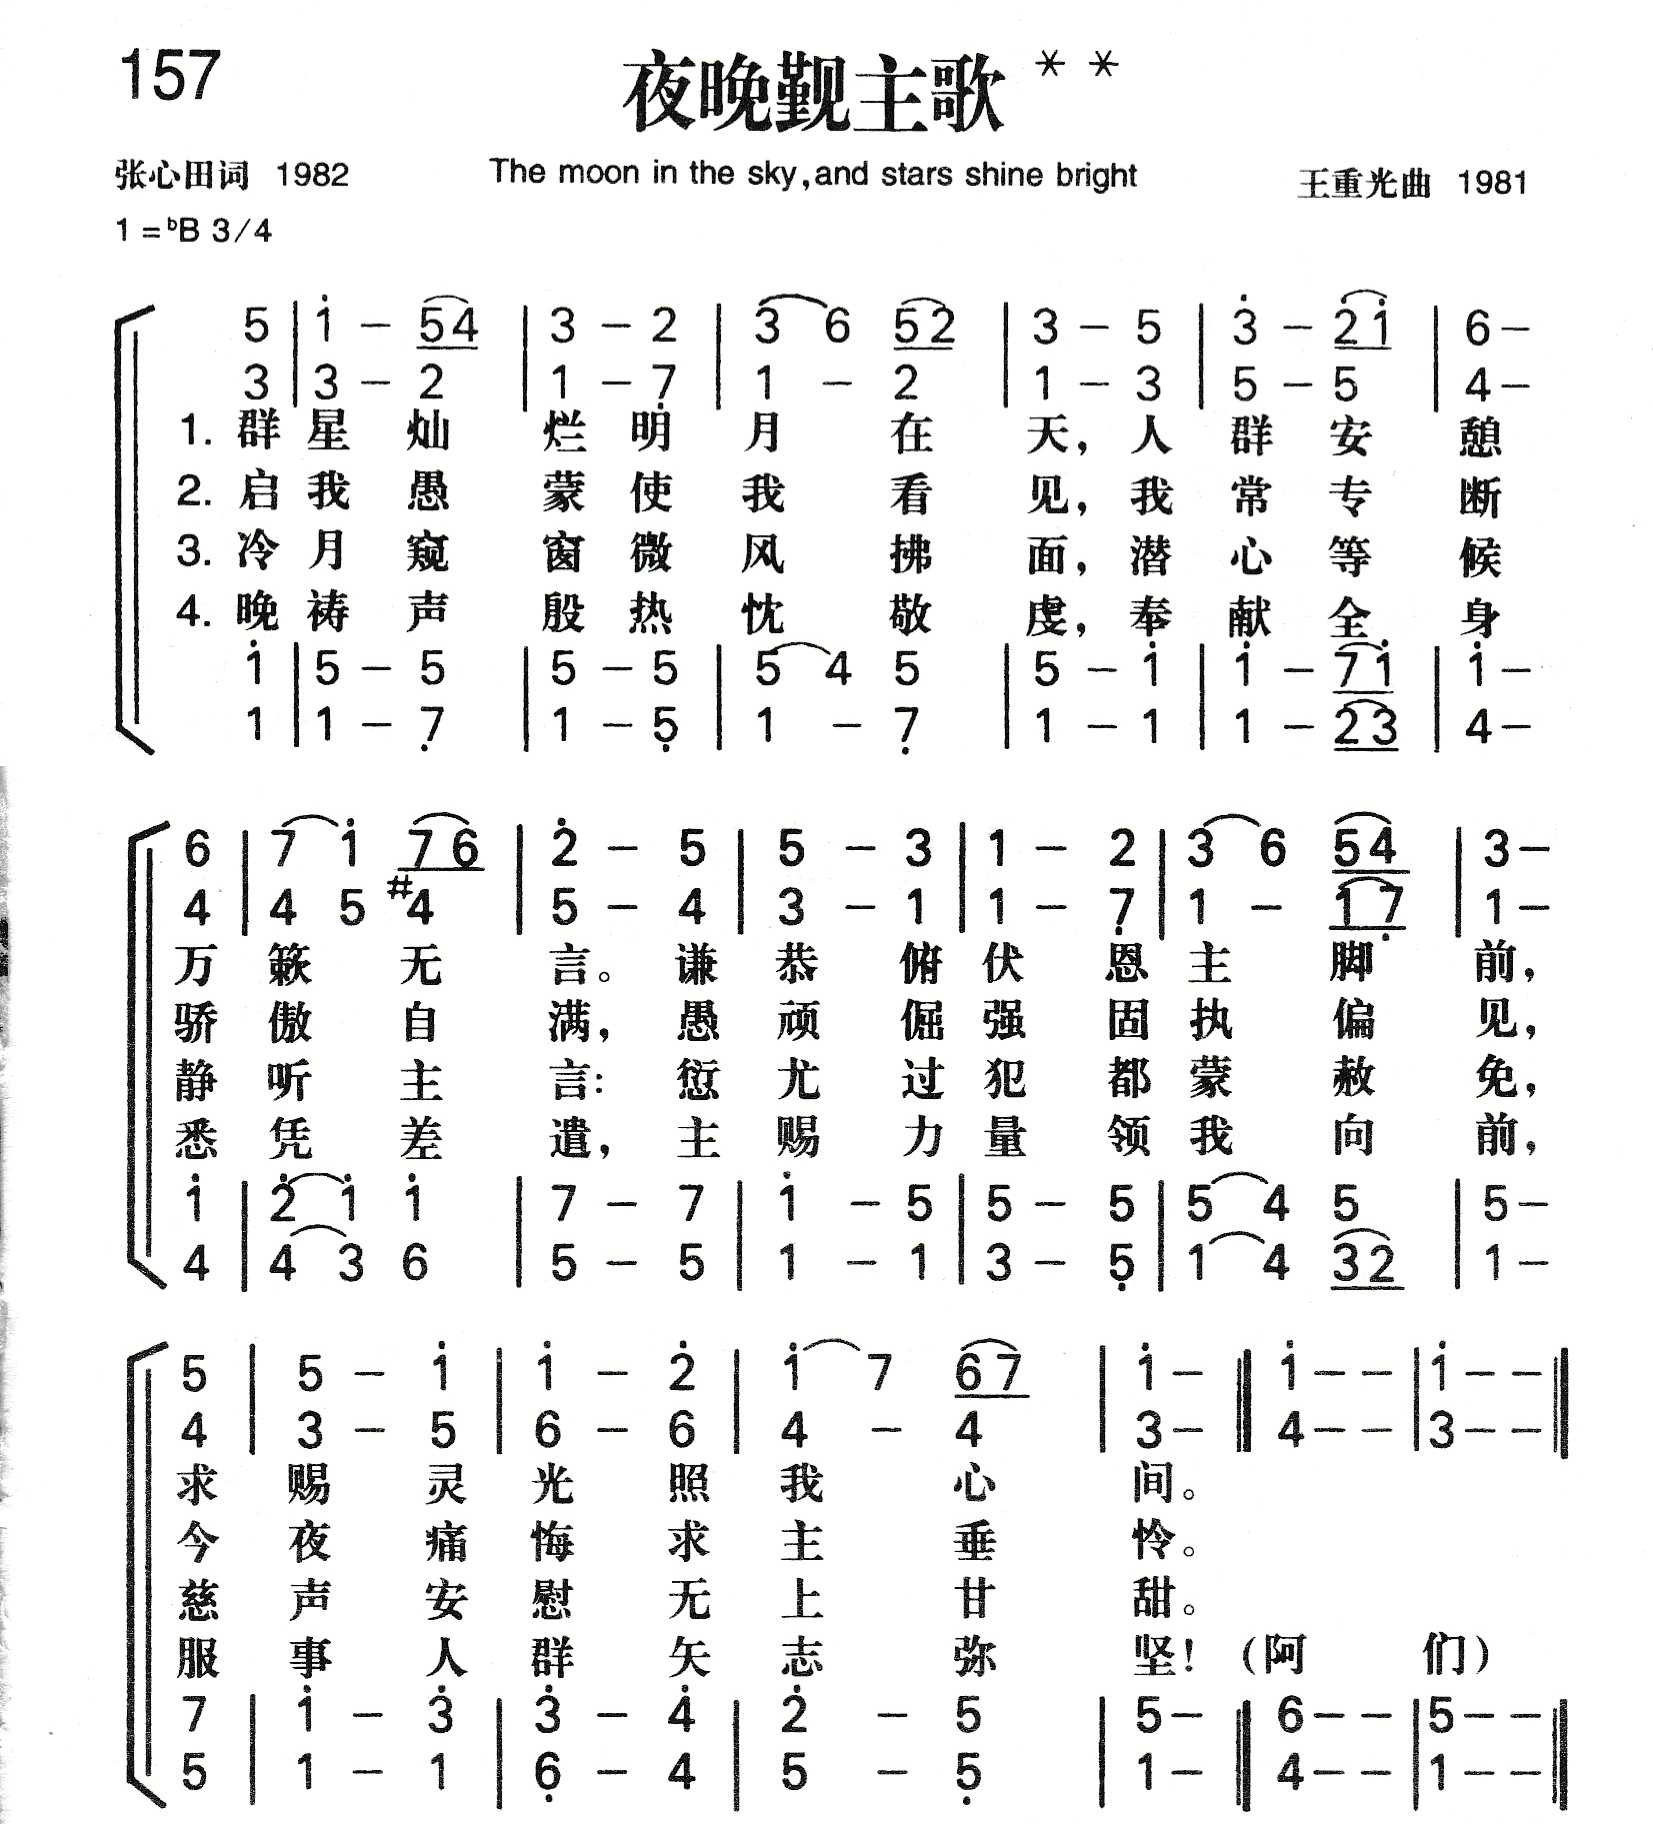 157
夜晚觐主歌 * *
张心田词 1982 The moon in the sky, and stars shine bright 王重光曲 1981
1=ᵇB 3/4
5 | i̇ – 5 4 | 3 – 2 | 3 6 5 2 | 3 – 5 | 3̇ – 2̇ i̇ | 6 –
3 | 3 – 2 | 1 – 7̣ | 1 – 2 | 1 – 3 | 5 – 5 | 4 –
1. 群星灿烂明月在天，人群安憩
2. 启我愚蒙使我看见，我常专断
3. 冷月窥窗微风拂面，潜心等候
4. 晚祷声殷热忱敬虔，奉献全身
1̇ | 5 – 5 | 5 – 5 | 5 4 5 | 5 – 1̇ | 1̇ – 7 1̇ | 1̇ –
1 | 1 – 7̣ | 1 – 5̣ | 1 – 7̣ | 1 – 1 | 1 – 2 3 | 4 –
6 | 7 1̇ 7 6 | 2̇ – 5 | 5 – 3 | 1 – 2 | 3 6 5 4 | 3 –
4 | 4 5 #4 | 5 – 4 | 3 – 1 | 1 – 7̣ | 1 – 1 7̣ | 1 –
万簌无言。谦恭俯伏恩主脚前，
骄傲自满，愚顽倔强固执偏见，
静听主言：愆尤过犯都蒙赦免，
悉凭差遣，主赐力量领我向前，
1̇ | 2̇ 1̇ 1̇ | 7 – 7 | 1̇ – 5 | 5 – 5 | 5 4 5 | 5 –
4 | 4 3 6 | 5 – 5 | 1 – 1 | 3 – 5̣ | 1 4 3 2 | 1 –
5 | 5 – 1̇ | 1̇ – 2̇ | 1̇ 7 6 7 | 1̇ – ‖ 1̇ – – | 1̇ – – ‖
4 | 3 – 5 | 6 – 6 | 4 – 4 | 3 – ‖ 4 – – | 3 – – ‖
求赐灵光照我心间。
今夜痛悔求主垂怜。
慈声安慰无上甘甜。
服事人群矢志弥坚！（阿们）
7 | 1̇ – 3̇ | 3̇ – 4̇ | 2̇ – 5 | 5 – ‖ 6 – – | 5 – – ‖
5 | 1 – 1 | 6̣ – 4 | 5 – 5̣ | 1 – ‖ 4 – – | 1 – – ‖